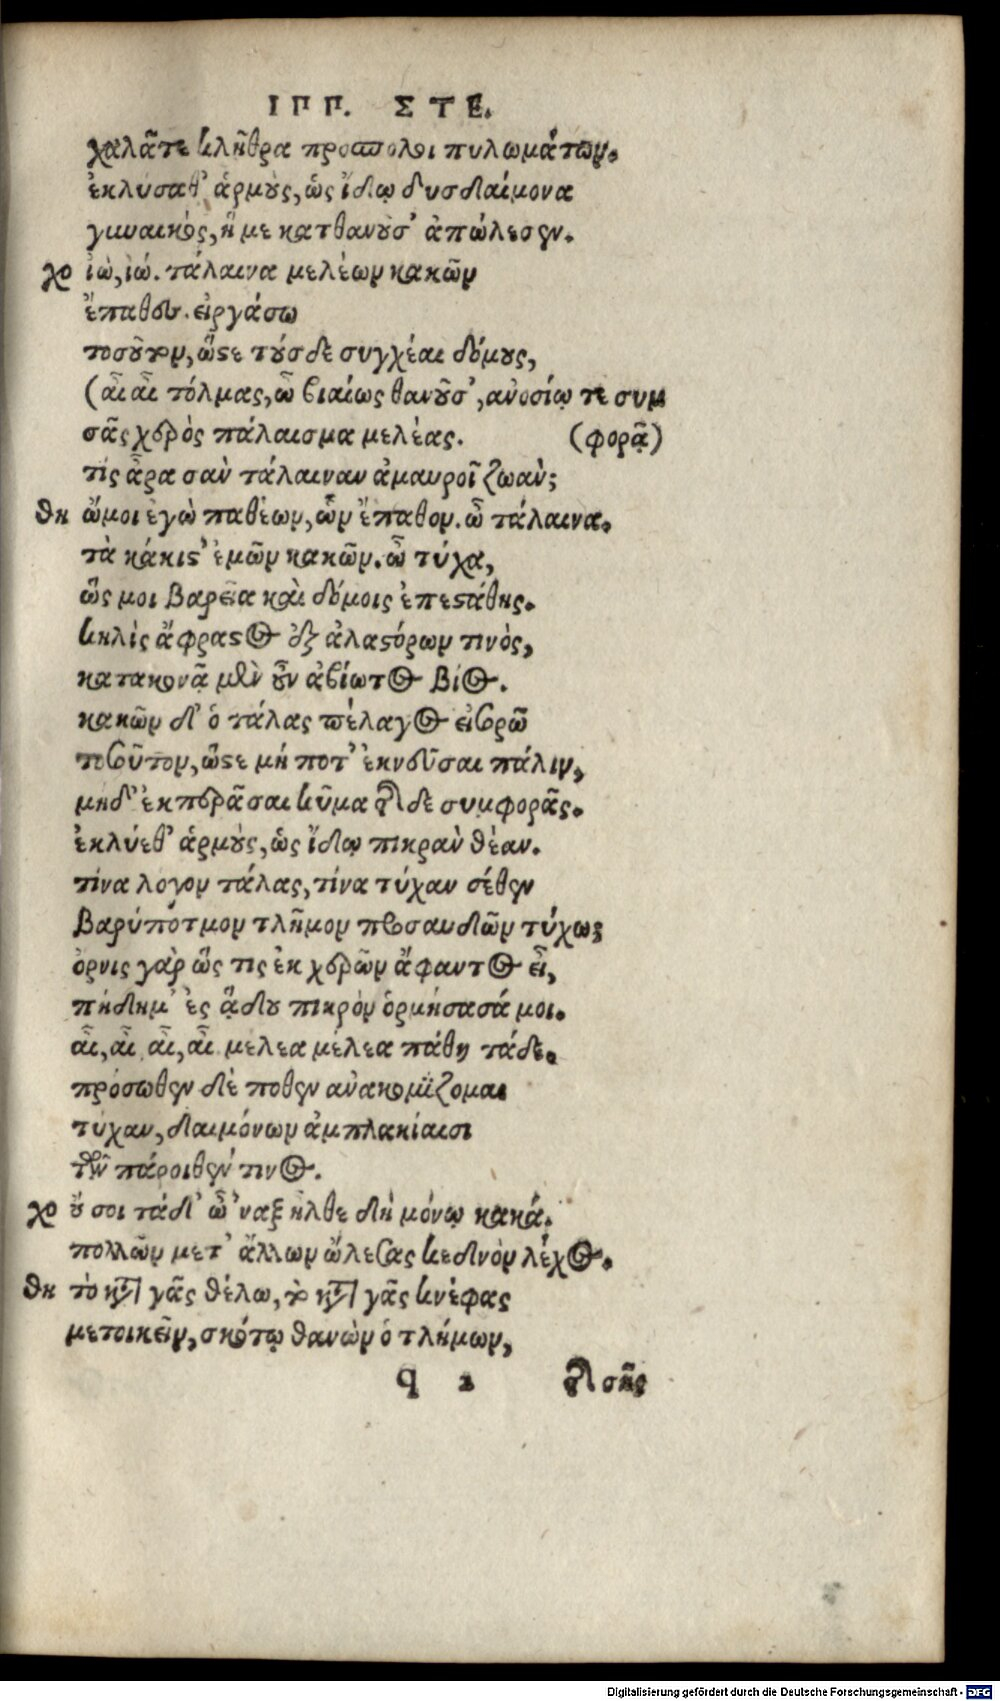 ΙΠΠ. ΣΤΕ.
χαλᾶτε κλῆθρα πρόσπολοι πυλωμάτων.
ἐκλύσαθ' ἁρμοὺς, ὡς ἴδω δυσδαίμονα
γυναικός, ἥ με κατθανοῦσ' ἀπώλεσεν.
χο ἰὼ, ἰώ. τάλαινα μελέων κακῶν
ἔπαθες. εἰργάσω
τοσοῦτον, ὥστε τούσδε συγχέαι δόμους,
(αἶ αἶ τόλμας, ὦ βιαίως θανοῦσ', ἀνοσίῳ τε συμ
σᾶς χερὸς πάλαισμα μελέας. (φορᾷ)
τίς ἆρα σὰν τάλαιναν ἀμαυροῖ ζωάν;
θη ὤμοι ἐγὼ παθέων, ὧν ἔπαθον. ὦ τάλαινα.
τὰ κάκιστ' ἐμῶν κακῶν. ὦ τύχα,
ὥς μοι βαρεῖα καὶ δόμοις ἐπεστάθης.
κηλὶς ἄφραστος ἐξ ἀλαστόρων τινὸς,
κατακονᾷ μὲν οὖν ἀβίωτος βίος.
κακῶν δ' ὁ τάλας πέλαγος εἰσορῶ
τοσοῦτον, ὥστε μή ποτ' ἐκνεῦσαι πάλιν,
μηδ' ἐκπερᾶσαι κῦμα τῆσδε συμφορᾶς.
ἐκλύεθ' ἁρμοὺς, ὡς ἴδω πικρὰν θέαν.
τίνα λογον τάλας, τίνα τύχαν σέθεν
βαρύποτμον τλῆμον προσαυδῶν τύχω;
ὄρνις γὰρ ὥς τις ἐκ χερῶν ἄφαντος εἶ,
πήδημ' ἐς ᾅδου πικρὸν ὁρμήσασά μοι.
αἶ, αἶ αἶ, αἶ μελεα μέλεα πάθη τάδε.
πρόσωθεν δέ ποθεν ἀνακομίζομαι
τύχαν, δαιμόνων ἀμπλακίαισι
τῶν πάροιθέν τινος.
χο οὔ σοι τάδ' ὦ 'ναξ ἦλθε δὴ μόνῳ κακά.
πολλῶν μετ' ἄλλων ὤλεσας κεδνὸν λέχος.
θη τὸ κατὰ γᾶς θέλω, τὸ κατὰ γᾶς κνέφας
μετοικεῖν, σκότῳ θανὼν ὁ τλήμων,
q 2 τῆς σῆς
Digitalisierung gefördert durch die Deutsche Forschungsgemeinschaft - DFG